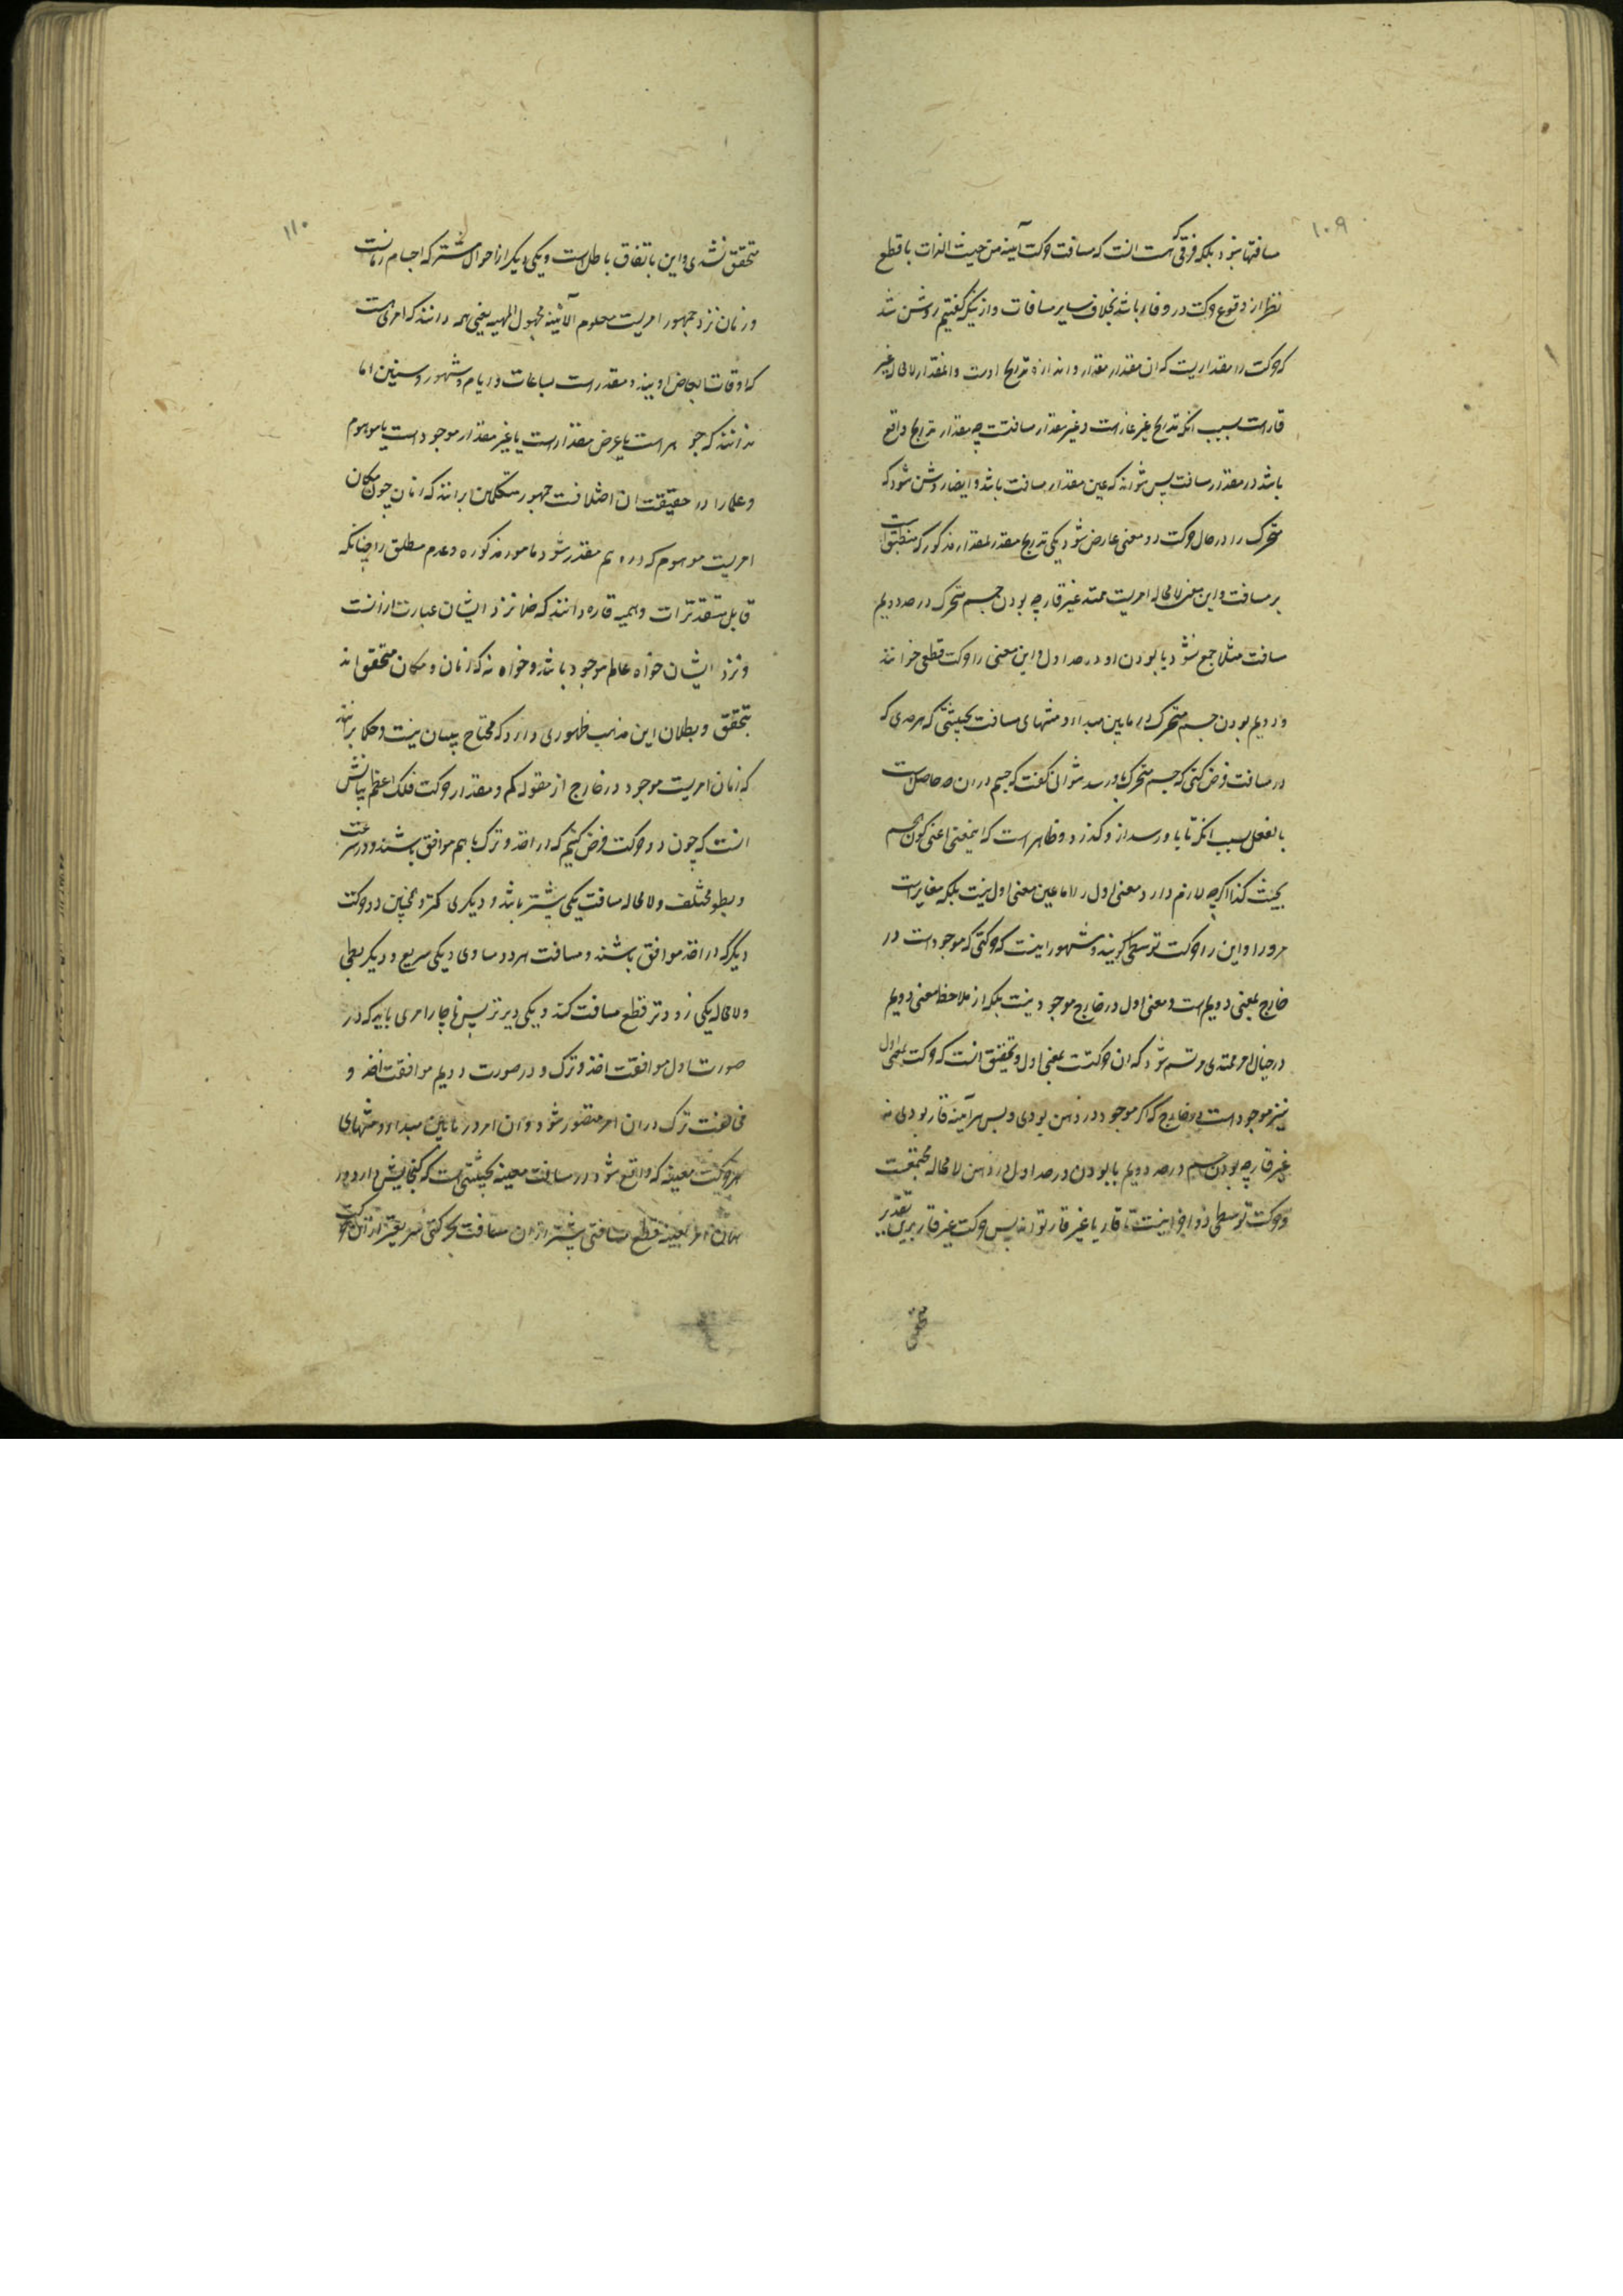 ۱۰۹
مسافتها نبود بلکه فرقی که هست انست که مسافت حرکت آینه من حیث الذات با قطع
نظر از وقوع حرکت در و قار باشد بخلاف سایر مسافات و از نیکه گفتیم روشن شد
که حرکت را مقداریست که ان مقدار مقدار و اندازه تدریج اوست و انمقدار لامحاله غیر
قار است بسبب انکه تدریج غیر قار است و غیر مقدار مسافتست چه مقدار تدریج واقع
باشد در مقدار مسافت پس نتواند که عین مقدار مسافت باشد و ایضا روشن شود که
متحرک را در حال حرکت دو معنی عارض شود یکی تدریج مقدر بمقدار مذکور که منطبق است
بر مسافت و این معنی لامحاله امریست ممتد غیر قار چه بودن جسم متحرک در حد دویم
مسافت مثلا جمع نشود با بودن او در حد اول و این معنی را حرکت قطعی خوانند
و دویم بودن جسم متحرک در مابین مبداء و منتهای مسافت بحیثیتی که هر حدی که
در مسافت فرض کنی که جسم متحرک باو رسد نتوانی گفت که جسم در ان حد حاصل است
بالفعل بسبب انکه تا باو رسد از و گذرد و ظاهر است که اینمعنی اعنی کون جسم
بحیث کذا اگرچه لازم دارد معنی اول را اما عین معنی اول نیست بلکه مغایر است
مر و را و این را حرکت توسطی گویند و مشهور اینست که حرکتی که موجود است در
خارج بمعنی دویم است و معنی اول در خارج موجود نیست بلکه از ملاحظه معنی دویم
در خیال امر ممتدی مرتسم شود که ان حرکتست بمعنی اول و تحقیق انست که حرکت بمعنی اول
نیز موجود است در خارج که اگر موجود در ذهن بودی و بس هر آینه قار بودی نه
غیر قار چه بودن جسم در حد دویم با بودن در حد اول در ذهن لامحاله مجتمعست
و حرکت توسطی ذو اجزا نیست تا قار یا غیر قار تواند پس حرکت غیر قار برین تقدیر
متحقق
۱۱۰
متحقق نشدی و این باتفاق باطل است و یکی دیگر از احوال مشترکه اجسام زمانست
و زمان نزد جمهور امریست معلوم الآنیة مجهول الماهیه یعنی همه دانند که امری هست
که اوقات ابعاض اویند و مقدر است بساعات و ایام و شهور و سنین اما
ندانند که جوهر است یا عرض مقدار است یا غیر مقدار موجود است یا موهوم
و علما را در حقیقت ان اختلافست جمهور متکلمین برانند که زمان چون مکان
امریست موهوم که در وهم مقدر شود بامور مذکوره و عدم مطلق را چنانکه
قابل تقدیرات وهمیه قاره دانند که خلا نزد ایشان عبارت ازانست
و نزد ایشان خواه عالم موجود باشد و خواه نه که زمان و مکان متحقق اند
بتحقق و بطلان این مذهب ظهوری دارد که محتاج ببیان نیست و حکما برانند
که زمان امریست موجود در خارج از مقوله کم و مقدار حرکت فلک اعظم بیانش
انست که چون دو حرکت فرض کنیم که در اخذ و ترک با هم موافق باشند و در سرعت
و بطو مختلف و لامحاله مسافت یکی بیشتر باشد و دیگری کمتر و همچنین دو حرکت
دیگر که در اخذ موافق باشند و مسافت هر دو مساوی و یکی سریع و دیگر بطی
و لامحاله یکی زودتر قطع مسافت کند و یکی دیرتر پس ناچار امری باید که در
صورت اول موافقت اخذ و ترک و در صورت دویم موافقت اخذ و
مخالفت ترک در ان امر متصور شود و ان امر در مابین مبداء و منتهای
هر حرکت معینه که واقع شود در مسافت معینه بحیثیتی است که گنجایش دارد در
همان امر بعینه قطع مسافتی بیشتر از ان مسافت بحرکتی سریعتر از ان حرکت